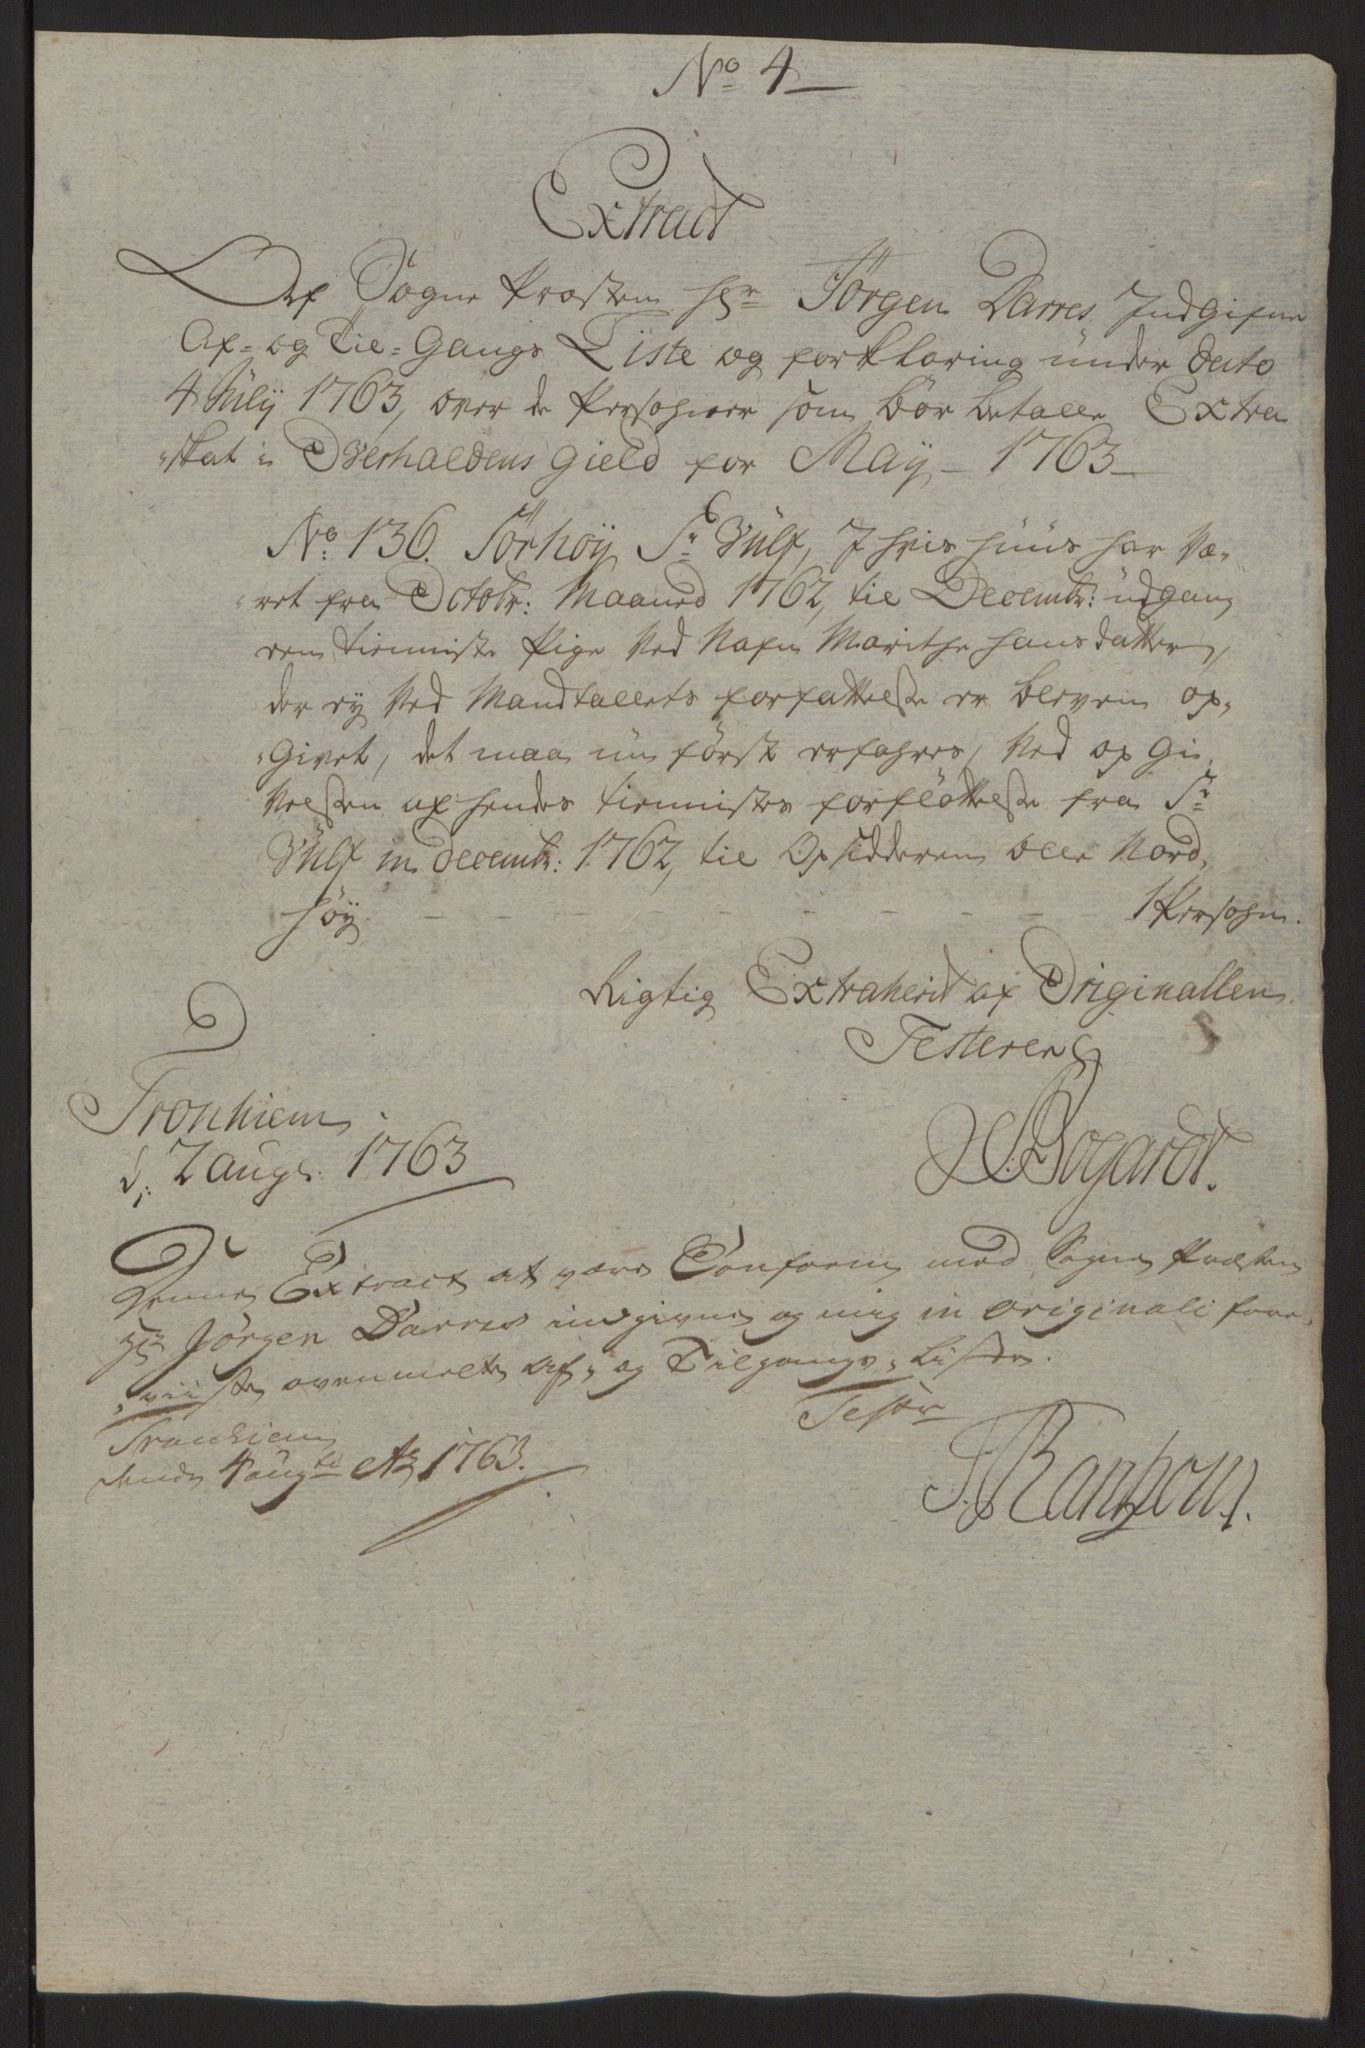 No 4
Extract
Af Sogne Præsten Hr Jörgen Darres Indgifne
Af- og Til-Gangs Liste og forklaring ünder Dato
4 Julÿ 1763, over de Persohner som bör betalle Extra
skat i Overhaldens Gield for Maÿ - 1763
No: 136. Sörhöÿ Sr Wülf, I hvis hüüs har væ-
ret fra Octobr: Maaned 1762, til Decembr: üdgang
een tienniste Pige ved Nafn Marithe Hansdatter,
der eÿ ved Mandtallets forfattelse er bleven op-
givet, det maa nu först erfahres, ved op gi-
velsen af hendes tiennistes forflöttelse fra Sr
Wülf in Decembr: 1762, til Opsidderen Olle Nord-
höÿ - - - - - - - - - 1 Persohn.
Rigtig Extraherit af Originallen
Testerer
Tronhiem
d: 2 augs: 1763
Bogardt.
Denne Extract at være Conform med Sogne Præsten
Hr Jörgen Darres indgivne og mig in originali fore-
viiste ovenmelte Af- og Tilgangs-Liste.
Tronhiem
4 aug 1763.